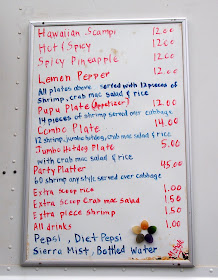 Hawaiian Scampi 12.00
Hot & Spicy 12.00
Spicy Pineapple 12.00
Lemon Pepper 12.00
All plates above served with 12 pieces of
shrimp, crab mac salad & rice
Pupu Plate (Appetizer) 12.00
14 pieces of shrimp served over cabbage
Combo Plate 14.00
12 shrimp, jumbo hotdog, crab mac salad & rice
Jumbo Hotdog Plate 5.00
with crab mac salad & rice
Party Platter 45.00
60 shrimp any style served over cabbage
Extra Scoop rice 1.00
Extra Scoop Crab mac salad 1.50
Extra piece Shrimp 1.50
All drinks 1.00
Pepsi, Diet Pepsi
Sierra Mist, Bottled Water